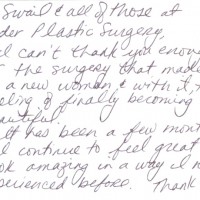 Swail & all of those at
der Plastic Surgery,
I can't thank you enou
r the surgery that made
a new woman & with it,
eling of finally becoming
autiful.
It has been a few month
I continue to feel great
ok amazing in a way I n
perienced before. Thank